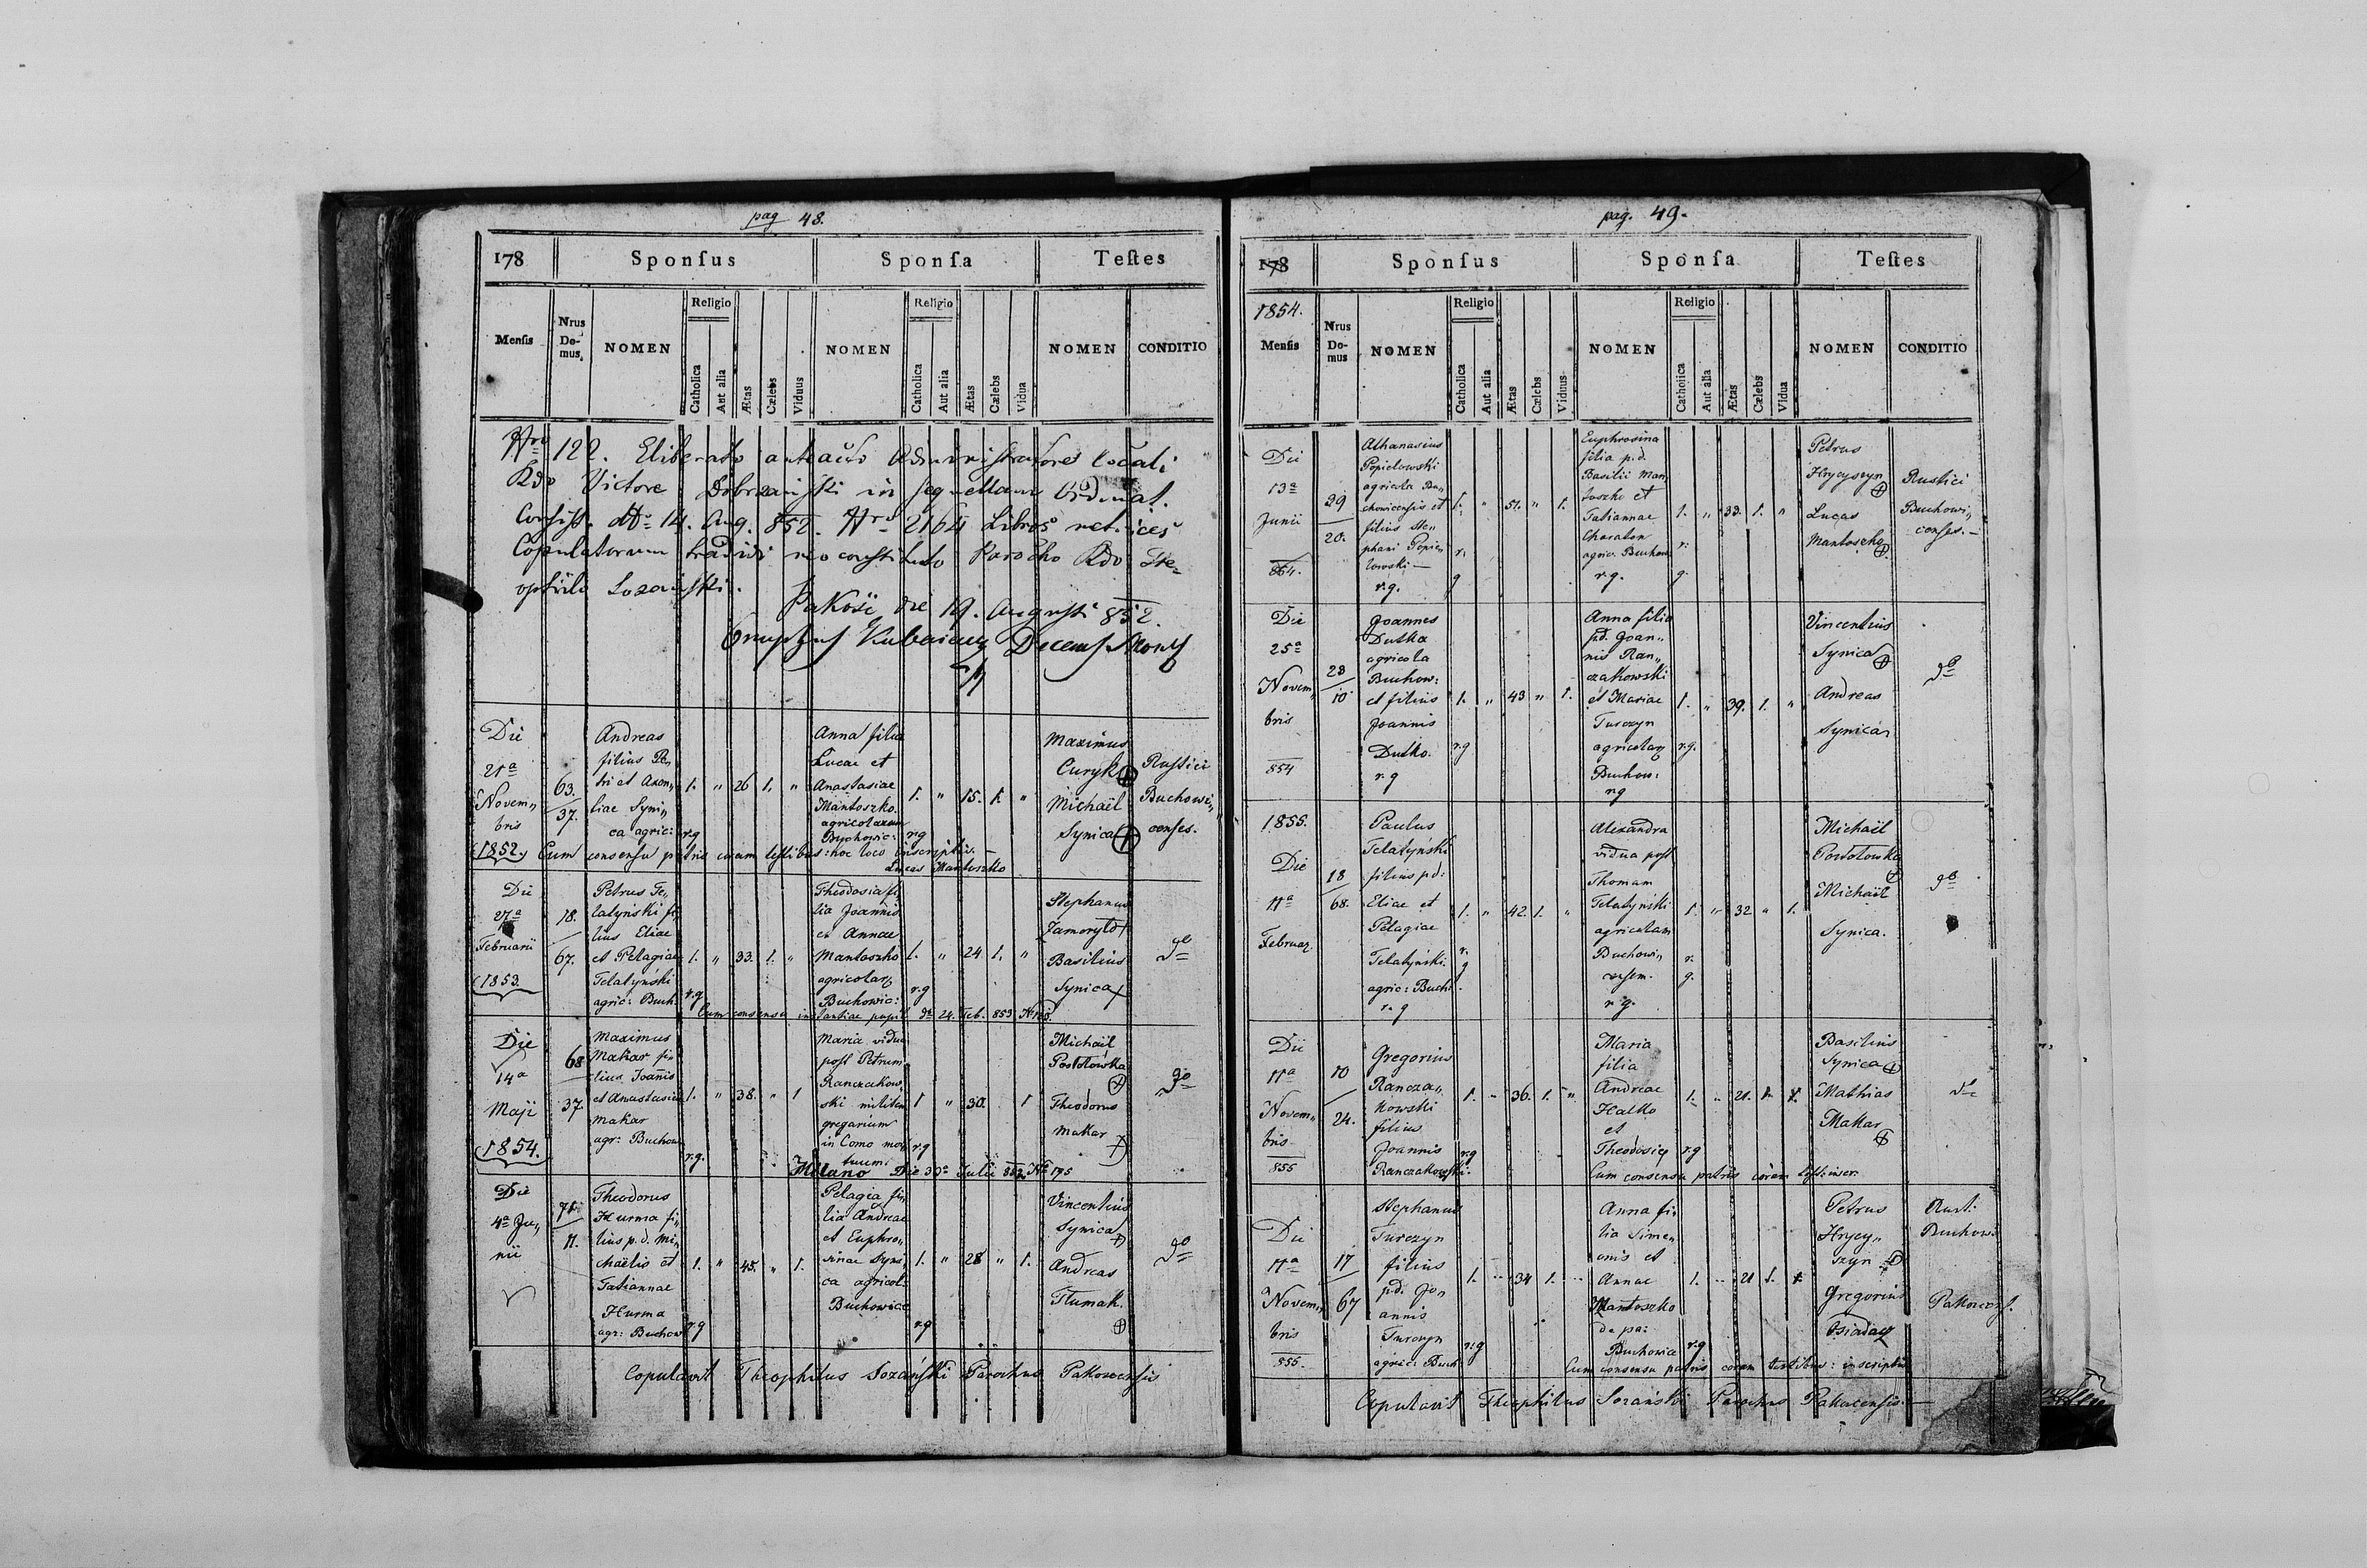 pag 48.
178 Sponſus Sponſa Teſtes
Menſis Nrus Domus. NOMEN Religio Catholica Aut alia Ætas Cælebs Viduus NOMEN Religio Catholica Aut alia Ætas Cælebs Vidua NOMEN CONDITIO
Nro 122. Eliberato anteacto Administratore locali
Rdo Victore Dobrzański in sequellam Ordinat.
Consist. dto 14. Aug. 852. Nro 2164 Libros metrices
Copulatorum tradidi neo constituto Parocho Rdo The-
ophilo Lozański.
Pakość die 19. Augusti 852.
Die
21a
Novem„
bris
1852.
63.
37.
Andreas
filius Pe„
tri et Axen„
tiae Syni„
ca agric:
r.g
1. „ 26 1. „
Anna filia
Lucae et
Anastasiae
Mantoszko
agricolarum
Buchowic: r.g
1. „ 15. 1. „
Maximus
Curyk
Michaël
Synica
Rustici
Buchowi„
censes.
Cum consensu patris coram testibus: hoc loco inscriptis. —
Lucas Mantoszko
Die
27a
Februarii
1853.
18.
67.
Petrus Te„
latyński fi„
lius Eliae
et Pelagiae
Telatyński
agric: Buch. r.g
1. „ 33. 1. „
Theodosia fi„
lia Joannis
et Annae
Mantoszko
agricolar
Buchowic: r.g
1. „ 24 1. „
Stephanus
Basilius
Synica
do
Cum consensu instantiae pupil do 24. Feb. 853 No 123.
Die
14a
Maji
1854.
68
37.
Maximus
Makar fi„
lius Joannis
et Anastasiae
Makar
agr: Buchow
r.g.
1. „ 38. „ 1
Maria vidua
post Petrum
Ranczakow„
ski militem
gregarium
in Como mor„
tuum r.g
1 „ 30. 1
Michaël
Postołowka
Theodorus
Makar
do
Milano Die 30a Julii 852 No 195
Die
4a Ju„
nii
71.
11.
Theodorus
Hurma fi„
lius p.d. Mi„
chaëlis et
Tatiannae
Hurma
agr: Buchow r.g
1. „ 45. „ 1.
Pelagia fi„
lia Andreae
et Euphro„
sinae Syni„
ca agricol.
Buchowice
r.g
1. „ 28 „ 1.
Vincentius
Synica
Andreas
Tłumak.
do
Copulavit Theophilus Lozański Parochus Pakosensis
pag. 49.
178 Sponſus Sponſa Teſtes
1854.
Menſis Nrus Domus NOMEN Religio Catholica Aut alia Ætas Cælebs Viduus NOMEN Religio Catholica Aut alia Ætas Cælebs Vidua NOMEN CONDITIO
Die
13a
Junii
854.
29
20.
Athanasius
Popielowski
agricola Bu„
chowicensis et
filius Ste„
phani Popie„
lowski —
r.g.
1. „ 51. „ 1.
r.
g
Euphrosina
filia p.d.
Basilii Man„
toszko et
Tatiannae
Charaton
agric. Buchow
r.g.
1. „ 33. 1. „
r.
g.
Petrus
Hrycyszyn
Lucas
Mantoszko
Rustici
Buchowi„
censes. —
Die
25a
Novem„
bris
854
23
10
Joannes
Dutka
agricola
Buchow:
et filius
Joannis
Dutko.
r.g
1. „ 43 „ 1.
r.g
Anna filia
p.d. Joan„
nis Ran„
czakowski
et Mariae
Turczyn
agricolar
Buchow:
r.g
1. „ 39. 1. „
r.g.
Vincentius
Synica
Andreas
Synica
do
1855.
Die
11a
Februar.
18
68.
Paulus
Telatyński
filius pd:
Eliae et
Pelagiae
Telatyński.
agric: Buch.
r.g
1. „ 42. 1. „
r.
g
Alexandra
vidua post
Thomam
Telatyński
agricolam
Buchowi„
censem.
r.g.
1. „ 32 „ 1.
r.
g.
Michaël
Postołowka
Michaël
Synica.
do
Die
11a
Novem„
bris
855
10
24.
Gregorius
Rancza„
kowski
filius
Joannis
Ranczakowski.
1. „ 36. 1. „
r.g
Maria
filia
Andreae
Hałko
et
Theodosiae
1. „ 21. 1.
r.g
Basilius
Synica
Mathias
Makar
do
Cum consensu patris coram test: inscr.
Die
11a
Novem„
bris
855.
17
67
Stephanus
Turczyn
filius
p.d. Jo„
annis
Turczyn
agric: Buch.
1. „ 34 1. „
r.g
Anna fi„
lia Sime„
onis et
Annae
Mantoszko
de pa:
Buchowice
1. „ 21 1.
r.g
Petrus
Hrycy„
szyn
Gregorius
Rusti:
Buchowi
Pakosens.
Cum consensu patris coram testibus: inscriptis
Copulavit Theophilus Lozański Parochus Pakosensis. —